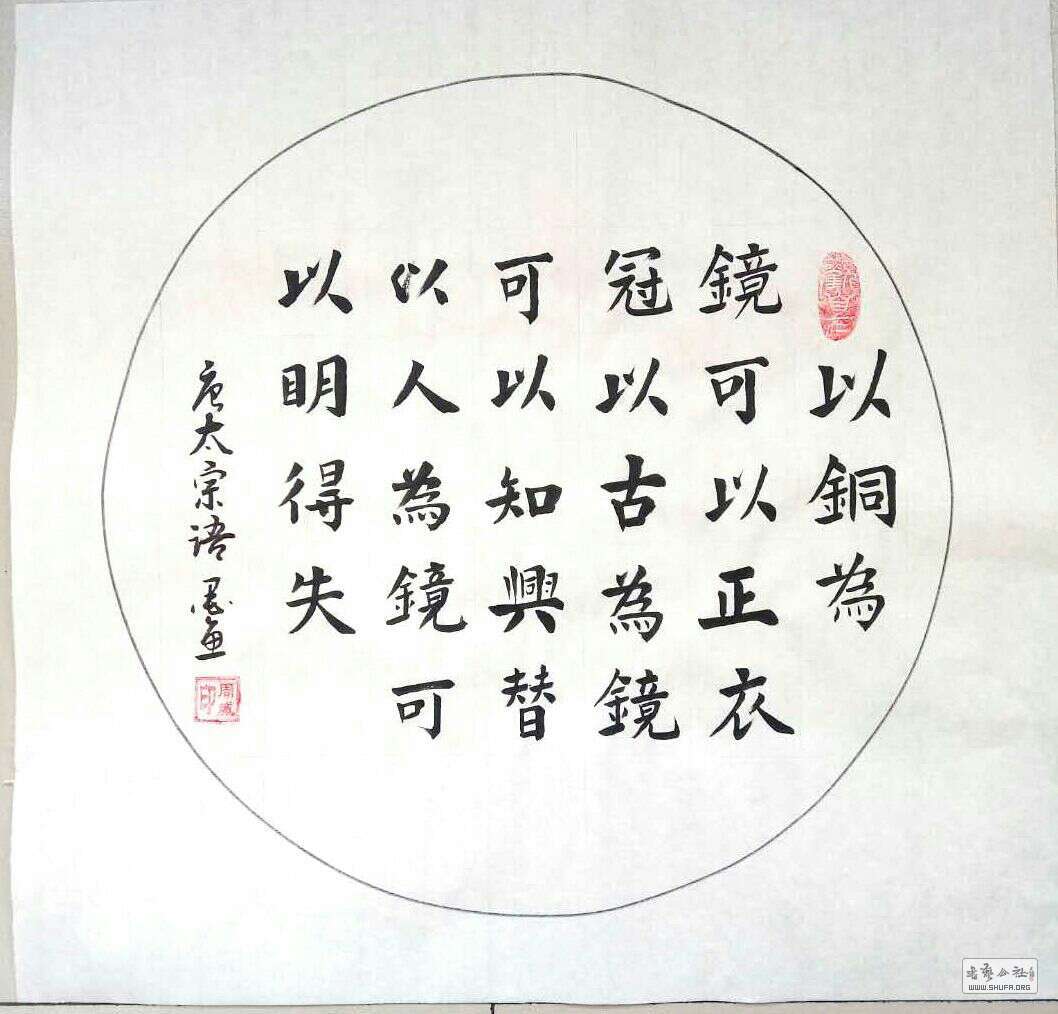 以銅為
鏡可以正衣
冠以古為鏡
可以知興替
以人為鏡可
以明得失
唐太宗语
WWW.SHUFA.ORG